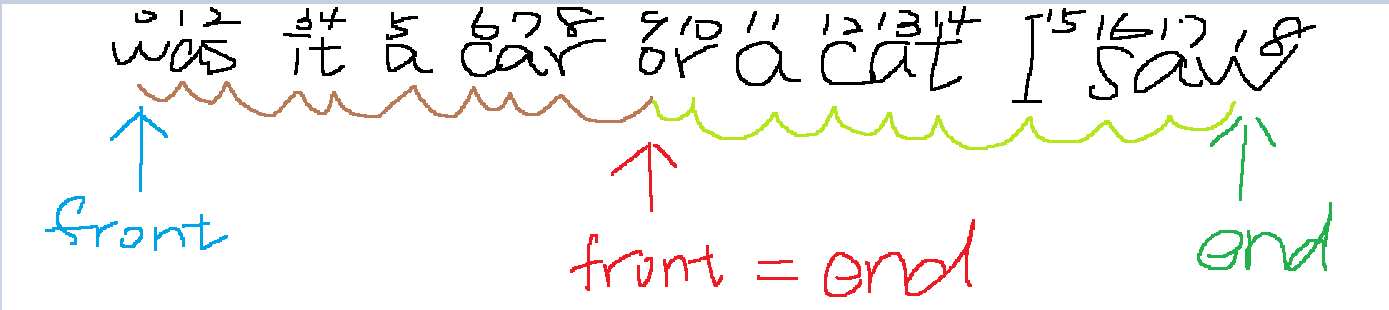 0 1 2 3 4 5 6 7 8 9 10 11 12 13 14 15 16 17 18
was it a car or a cat I saw
front front = end end